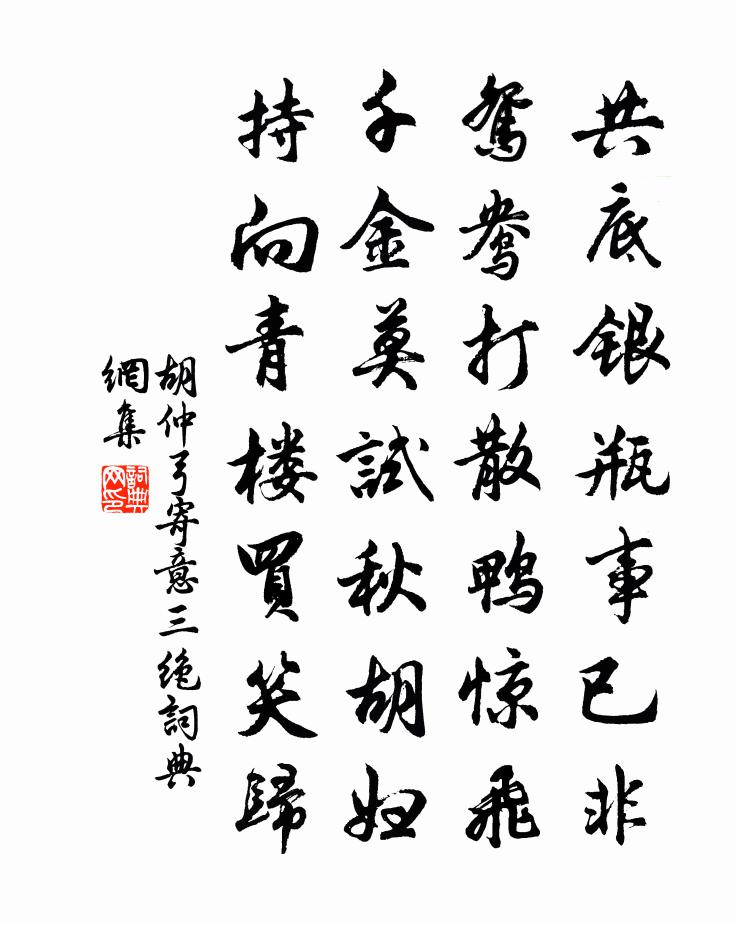 共底银瓶事已非
鸳鸯打散鸭惊飞
千金莫試秋胡妇
持向青楼買笑歸
胡仲弓寄意三绝詞典
網集
詞典
网印